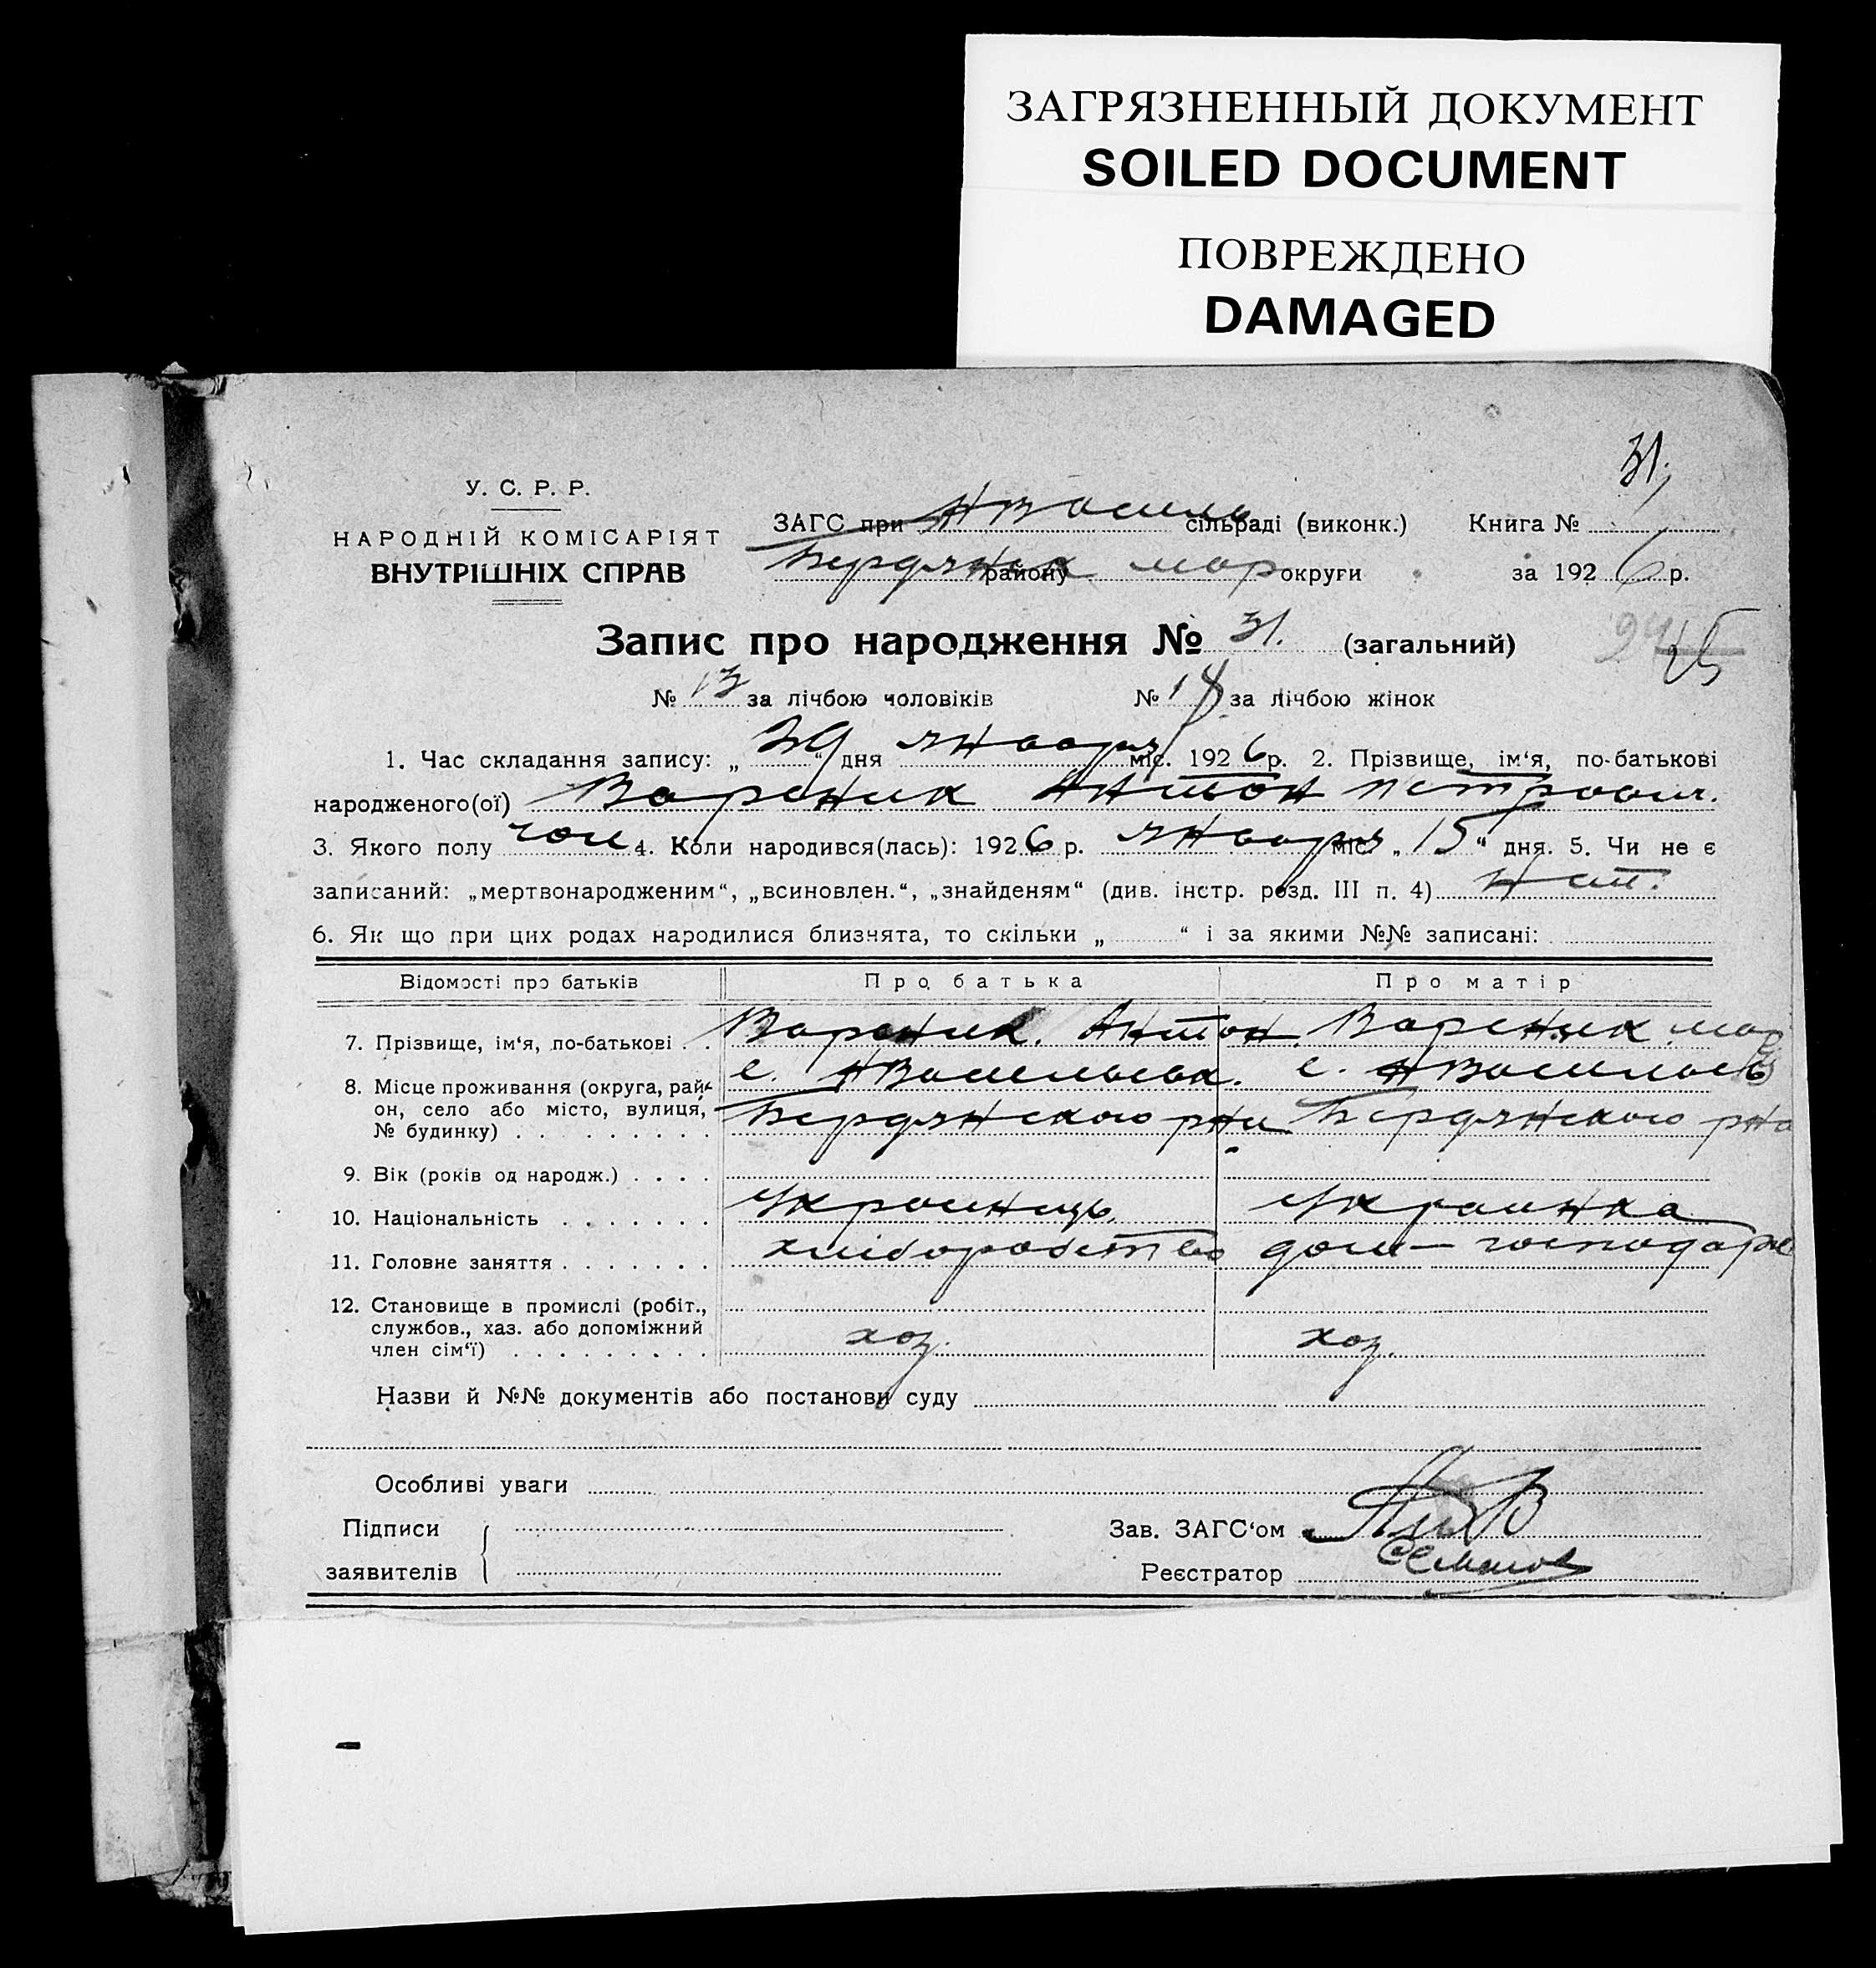 ЗАГРЯЗНЕННЫЙ ДОКУМЕНТ
SOILED DOCUMENT
ПОВРЕЖДЕНО
DAMAGED
31,
У. С. Р. Р.
НАРОДНІЙ КОМІСАРІЯТ
ВНУТРІШНІХ СПРАВ
ЗАГС при НВасиль сільраді (виконк.) Книга №
Бердянск району мар округи за 1926 р.
Запис про народження № 31. (загальний)
№ 13 за лічбою чоловіків № 18 за лічбою жінок
1. Час складання запису: „29“ дня января міс. 1926 р. 2. Прізвище, ім‘я, по-батькові
народженого(ої) Вареник Антон Петрович.
3. Якого полу чол 4. Коли народився(лась): 1926 р. января міс. „15“ дня. 5. Чи не є
записаний: „мертвонародженим“, „всиновлен.“, „знайденям“ (див. інстр. розд. III п. 4) Нет.
6. Як що при цих родах народилися близнята, то скільки „ “ і за якими №№ записані:
Відомості про батьків Про батька Про матір
7. Прізвище, ім‘я, по-батькові . . Вареник. Антон. Вареник мар
8. Місце проживання (округа, рай- с. НВасильевк. с. НВасильев
он, село або місто, вулиця, Бердянского рна Бердянского рна
№ будинку) . . . . . . . . .
9. Вік (років од народж.) . . . .
10. Національність . . . . . . . Украинць. Украинка
11. Головне заняття . . . . . . . хліборобство дом — господарк
12. Становище в промислі (робіт.,
службов., хаз. або допоміжний хоз. хоз.
член сім‘ї) . . . . . . . . .
Назви й №№ документів або постанови суду
Особливі уваги
Підписи Зав. ЗАГС‘ом
заявителів Реєстратор